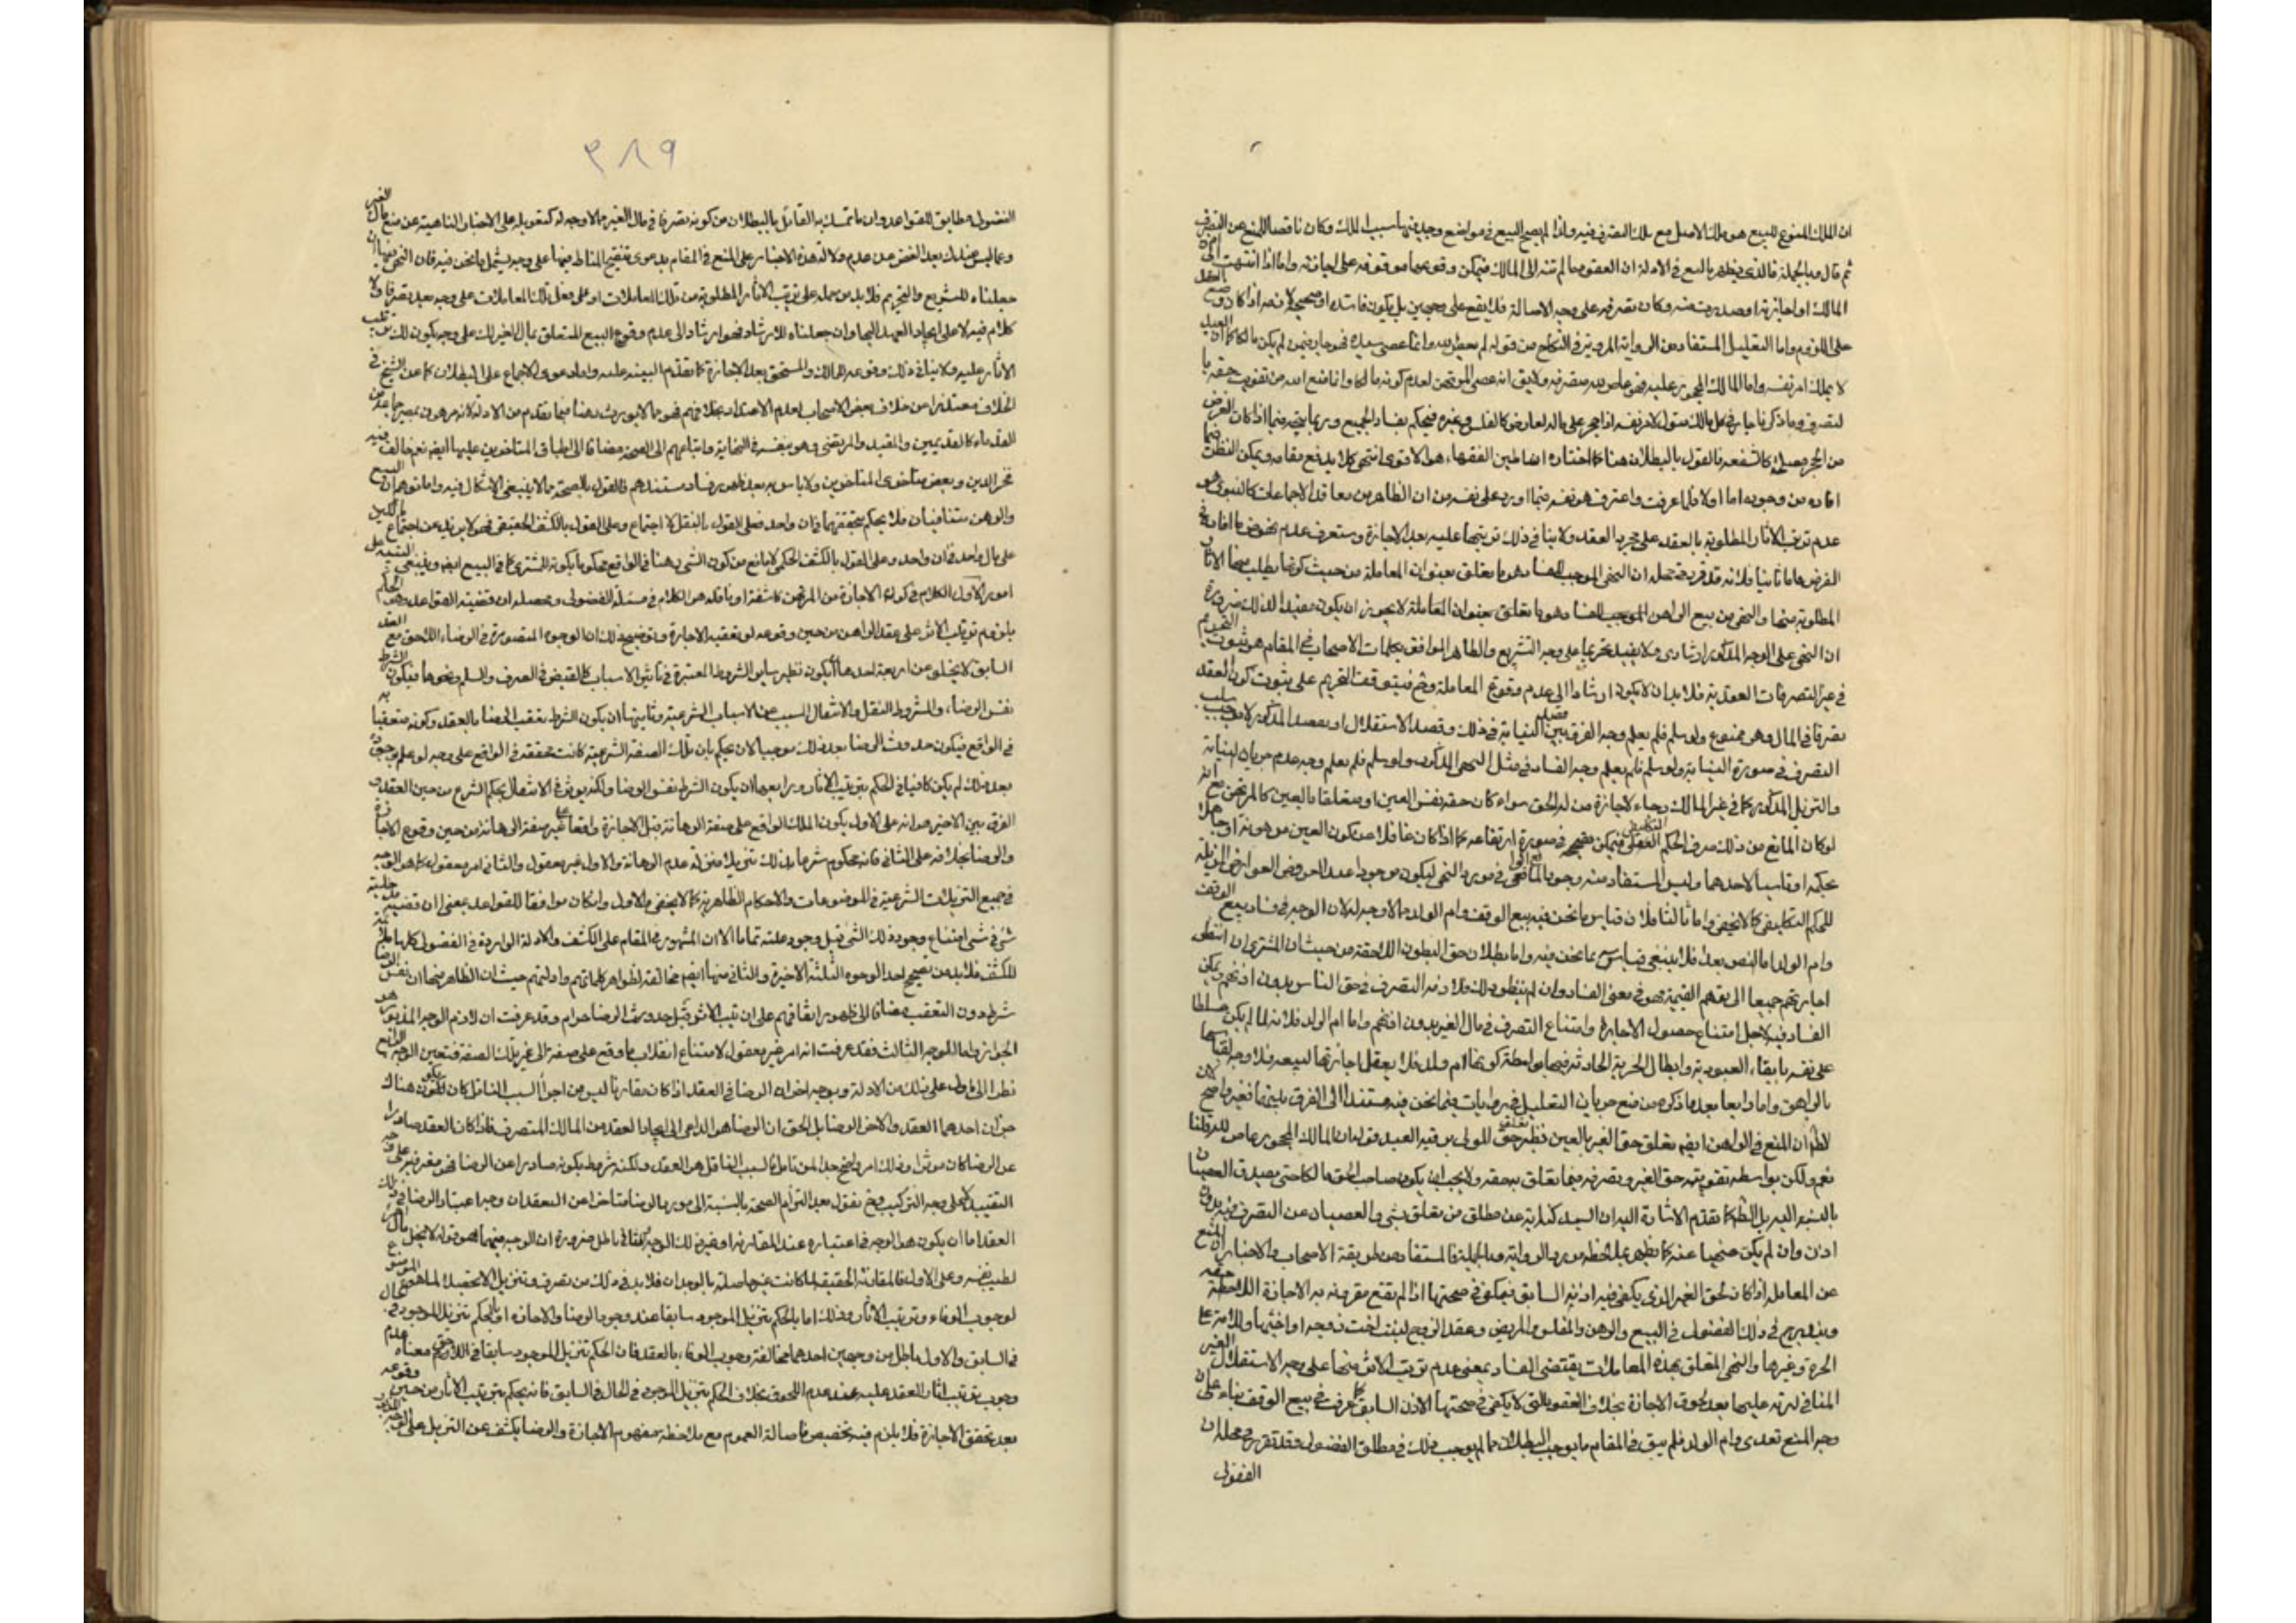 ان الملك المسوغ للبيع هو ملك الاصل مع ملك التصرف فيه ولذا لم يصح البيع في مواضع وجد فيها سبب الملك وكان ناقصا للمنع عن التصرف
ثم قال وبالجملة فالذي يظهر بالتتبع في الادلة ان العقود ما لم تنته الى المالك فيمكن وقوعها موقوفة على اجازته واما اذا انتهت الى اذن
المالك او اجازته او صدرت منه وكان تصرفه على وجه الاصالة فلا يقع على وجهين بل يكون فاسدا او صحيحا لازما اذا كان وضع العقد
على اللزوم واما التعليل المستفاد من الرواية المروية في النكاح من قوله لم يعص الله وانما عصى سيده فهو جار فيمن لم يكن مالكا كما ان العبد
لا يملك امر نفسه واما المالك المحجور عليه فهو عاص لله بتصرفه ولا يق انه عصى المرتهن لعدم كونه مالكا وانما منع الله من تفويت حقه با
لتصرف وما ذكرنا جار في كل مالك متول لامر نفسه اذا حجر على ماله لعارض كالفلس وغيره فيحكم بفساد الجميع وربما يتجه فيما اذا كان الغرض
من الحجر مصلحة كالشفعة فالقول بالبطلان هنا كما اختاره اساطين الفقهاء هو الاقوى انتهى كلامه رفع مقامه ويمكن النظر فيما
افاده من وجوه اما اولا فلما عرفت واعترف هو نفسه فيما اورد على نفسه من ان الظاهر من معاقد الاجماعات كالنبوى هو
عدم ترتب الاثار المطلوبة بالعقد على مجرد العقد ولا ينافى ذلك ترتبها عليه بعد الاجازة وستعرف عدم نهوض ما افاده في
الفرض واما ثانيا فلانه قد قرر في محله ان النهى الموجب للفساد هو ما تعلق بعنوان المعاملة من حيث كونها يطلب منها الاثار
المطلوبة منها والنهى من بيع الراهن الموجب للفساد وهو ما تعلق بعنوان المعاملة لا يجوز ان يكون مفيدا لذلك ضرورة
ان النهى على الوجه المذكور ارشادى ولا يفيد تحريما على وجه التشريع والظاهر الموافق بكلمات الاصحاب في المقام هو ثبوت التحريم
في غير التصرفات العقدية فلا بد ان لا يكون ارشادا الى عدم وقوع المعاملة وح فيتوقف التحريم على ثبوت كون العقد
تصرفا في المال وهو ممنوع ولو سلم فلم يعلم وجه الفرق بين قصد النيابة في ذلك وقصد الاستقلال او
التصرف في صورة النيابة ولو سلم فلم يعلم وجه الفساد في مثل النهى المذكور ولو سلم فلم يعلم وجه عدم جريان
والتنزيل المذكور كما في غير المالك رجاء لاجازة من له الحق سواء كان حقه نفس العين او متعلقا بالعين كالمرتهن مع انه
لو كان المانع من ذلك صرف الحكم التكليفى فيمكن في صورة ارتفاعه كما اذا كان غافلا عن كون العين مرهونة او جاهلا
بحكمه او ناسيا لاحدهما وليس المستفاد منه وجود المانع في مورد النهى
للحكم التكليفى كما لا يخفى واما ثالثا فلان قياس ما نحن فيه ببيع الوقف وام الولد مما لا وجه له لان الوجه في فساد بيع الوقف
وام الولد اما النص بعد فلا ينبغى قياس ما نحن فيه واما بطلان حق البطون اللاحقة من حيث ان المشترى ان انتظر
اجازتهم جميعا الى بقائهم القيمة فهو في معنى الفساد وان لم ينتظر ذلك فلازمه التصرف في حق الناس بدون اذنهم ويمكن
الفساد فيه لاجل امتناع حصول الاجازة وامتناع التصرف في مال الغير بدون اذنهم واما ام الولد فلانه لما لم يكن مسلطا
على نفسه بابقاء العبودية وابطال الحرية الحادثة فيها بواسطة كونها ام ولد فلا يعقل اجازتها لبيعه فلا وجه لقياسها
بالراهن واما رابعا بعد ما ذكره من منع جريان التعليل في روايات فيما نحن فيه مستندا الى الفرق بينهما فغير واضح لان
لظ ان المنع في الراهن ايضم تعلق حق الغير بالعين نظير حق المولى برقية العبد فقوله ان المالك المحجور عاص لله قلنا
نعم ولكن بواسطة تفويته حق الغير وتصرفه فيما تعلق به حقه ولا يجب ان يكون صاحب الحق مالكا حتى يصدق العصيان
بالنسبة اليه بل الظ كما تقدم الاشارة اليه ان السيد كناية عن مطلق من تعلق بشى والعصيان عن التصرف فيه بدون
اذن وان لم يكن منهيا عنه كما يظهر بملاحظة مورد الرواية وبالجملة فالمستفاد من طريقة الاصحاب والاخبار ان المنع
عن المعاملة اذا كان لحق الغير الذى يكفى فيه اذنه السابق فيكفى في صحتها اذا لم تقع مقرونة به الاجازة اللاحقة منه
ويندرج في ذلك الفضولى في البيع والرهن والمفلس والمريض وعقد الزوج لبنت اخت زوجه او اخيها وللامة على
الحرة وغيرها والنهى المتعلق بهذه المعاملات يقتضى الفساد بمعنى عدم ترتب الاثر عليها على وجه الاستقلال الغير
المنافى لترتبه عليها بعد لحوق الاجازة بخلاف العقود التى لا يكفى في صحتها الاذن السابق كما عرفت في بيع الوقف بناء على ان
وجه المنع تعبدى وام الولد فلم يبق في المقام ما يوجب البطلان مما لم يوجب ذلك في مطلق الفضولى وقد تقرر في محله ان
الفضولى
٢٨٩
الفضولى مطابق للقواعد وان ما تمسك به القائل بالبطلان من كونه تصرفا في مال الغير مما لا وجه له كتعويله على الاخبار الناهية عن منع مال الغير
وعما ليس عندك بعد الغض عن عدم دلالة هذه الاخبار على المنع في المقام بدعوى تنقيح المناط فيها على وجه يشمل ما نحن فيه فان النهى فيها ان
جعلناه للتشريع والتحريم فلا بد من حمله على ترتيب الاثار المطلوبة من تلك المعاملات او على فعل تلك المعاملات على وجه يعد تصرفا ولا
كلام فيه لا على ايجاد العهد اليها وان جعلناه للارشاد فهو ارشاد الى عدم وقوع البيع المتعلق بمال الغير لك على وجه يكون لك ترتيب
الاثار عليه ولا ينافى ذلك وقوعه للمالك والمستحق بعد الاجازة كما تقدم البينة عليه واما دعوى الاجماع على البطلان كما عن الشيخ في
الخلاف معتذرا من خلاف بعض الاصحاب لعدم الاعتداد بخلافهم فهو مما لا يورث وهنا فيما تقدم من الادلة لانه مرهون بمصير جماعة من
القدماء كالقديمين والمفيد والمرتضى وهو بنفسه في النهاية واتباعهم الى الصحة مضافا الى اطباق المتاخرين عليها ايضم نعم خالف فيه
فخر الدين وبعض متاخرى المتاخرين ولا باس به بعد ظهور فساد مستندهم فالقول بالصحة مما لا ينبغى الاشكال فيه واما توهم ان البيع
والرهن متنافيان فلا يحكم بتحققهما في ان واحد فعلى القول بالنقل لا اجتماع وعلى القول بالكشف الحقيقى فهو لا يزيد عن اجتماع مالكين
على مال واحد في ان واحد وعلى القول بالكشف الحكمى لا مانع من كون الشى رهنا في الواقع محكوما بكونه للمشترى كما في البيع ايضم وينبغى التنبيه على
امور الاول الكلام في كون الاجازة من المرتهن كاشفة او ناقلة هو الكلام في مسئلة الفضولى ومحصله ان قضية القواعد وهو الحكم
بلزوم ترتيب الاثر على عقد الراهن من حين وقوعه لو تعقبه الاجازة وتوضيح ذلك ان الوجوه المتصورة في الرضاء اللاحق مع العقد
السابق لا يخلو عن اربعة احدها ان يكون نظير ساير الشروط المعتبرة في تاثير الاسباب كالقبض في الصرف والسلم ونحوها فيكون الشرط
نفس الرضاء والمشروط النقل والانتقال المسبب عن الاسباب الشرعية وثانيها ان يكون الشرط تعقب الرضا بالعقد وكونه متعقبا به
في الواقع فيكون حدوث الرضا بعد ذلك موجبا لان يحكم بان تلك الصفة الشرعية كانت متحققة في الواقع على وجه لو علم بوجوده
بعد ذلك لم يكن كافيا في الحكم بترتيب الاثار ورابعها ان يكون الشرط نفس الرضا ولكنه يوثر في الانتقال بحكم الشرع من حين العقد و
الفرق بين الاخيرين انه على الاول يكون الملك الواقع على صفة الرهانة قبل الاجازة واقعا على غير صفة الرهانة من حين وقوع الاجازة
والرضا بخلافه على الثانى فانه محكوم شرعا بذلك تنزيلا منزلة عدم الرهانة والاول غير معقول والثانى امر معقول كما هو الوجه
في جميع التنزيلات الشرعية في الموضوعات والاحكام الظاهرية كما لا يخفى والاول وان كان موافقا للقواعد بمعنى ان قضية مدخلية
شئ في شى امتناع وجود ذلك الشى قبل وجود علته تماما الا ان المشهور في المقام على الكشف والادلة الواردة في الفضولى كلها ملائمة
للكشف فلا بد من تصحيح احد الوجوه الثلثة الاخيرة والثانى منها ايضم مخالفة لظواهر كلماتهم وادلتهم حيث ان الظاهر منها ان نفس الرضا
شرط دون التعقب مضافا الى ظهور اتفاقهم على ان ترتيب الاثر قبل حدوث الرضا حرام وقد عرفت ان لازم الوجه المذكور هو
الجواز واما الوجه الثالث فقد عرفت انه امر غير معقول لامتناع انقلاب ما وقع على صفة الى غير تلك الصفة فتعين الوجه الرابع
نظرا الى ما دل على ذلك من الادلة وتوجيه اخر ان الرضا في العقد اذا كان مقارنا ليس من اجزاء السبب الناقل كان يكون هناك
جزئان احدهما العقد والاخر الرضا بل الحق ان الرضا هو الداعى الى ايجاد العقد من المالك المتصرف فاذا كان العقد صادرا
عن الرضا كان موثرا وذلك امر واضح جدا لمن تامل فالسبب الناقل هو العقد ولكنه شرط بكونه صادرا عن الرضا فهو معتبر فيه على وجه
التقييد لا على وجه التركيب وح نقول بعد التزام الصحة بالنسبة الى مورد الرضا متاخرا عن العقد ان وجه اعتبار الرضا في ذلك
العقد اما ان يكون هو الوجه في اعتباره عند المقارنة او غير ذلك الوجه والثانى باطل ضرورة ان الوجه فيهما هو قوله لا يحل مال امرء
لطيب نفسه وعلى الاول فالمقارنة الحقيقية لما كانت غير حاصلة بالوجدان فلا بد في ذلك من تصرف وتنزيل لا تحصيلا لما هو الموضوع
لوجوب الوفاء وترتيب الاثار وذلك اما بالحكم بتنزيل الموجود سابقا عند وجود الرضا والاجازة او بالحكم بتنزيل الموجود في الحال
في السابق والاول باطل من وجهين احدهما مخالفة وجوب الوفاء بالعقد فان الحكم بتنزيل الموجود سابقا في اللاحق معناه عدم
وجوب ترتيب اثار العقد عليه عند عدم اللحوق بخلاف الحكم بتنزيل الموجود في الحال في السابق فانه يحكم بترتيب الاثار من حين وقوعه
بعد تحقق الاجازة فلا يلزم فيه تخصيص فاصالة العموم مع ملاحظة مفهوم الاجازة والرضا يكشف عن التنزيل على الوجه المذكور